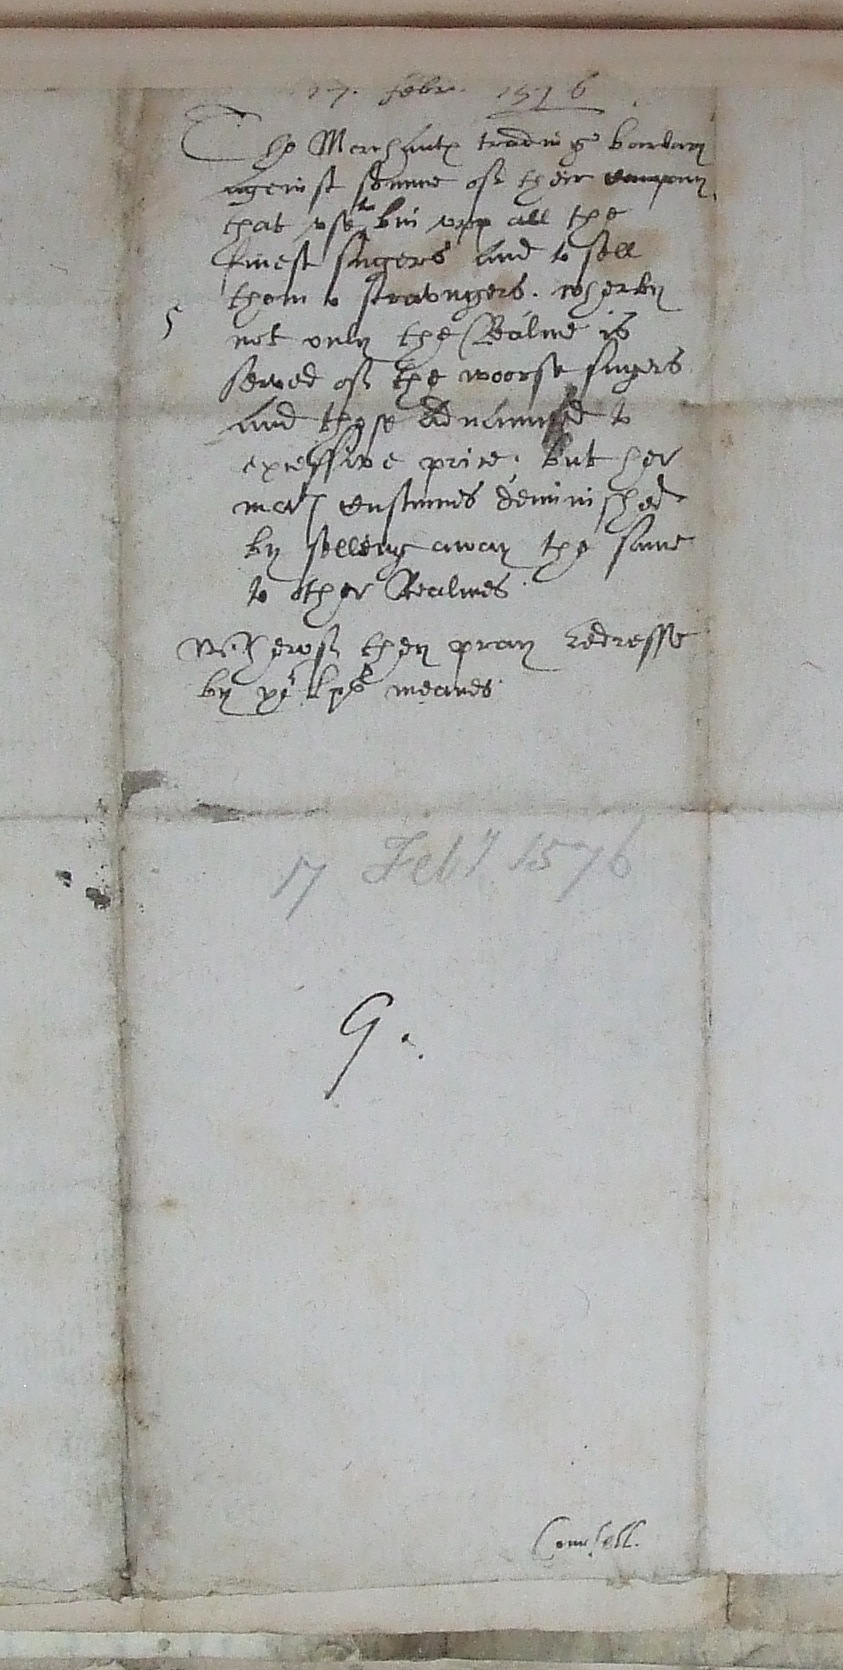 17. febr. 1576
The Merchants trading barbary
against somme of their company,
that vse to bui vpp all the
finest sugers and to sell
them to straungers. wherby
5
not only the Realme is
served of the woorse sugers
and those advaunced to
excessive price. but her
mats customes deminished
by selleng away the same
to other Realmes.
Wherof they pray redresse
by yor Lps meanes.
17 Feby 1576
9.
Counsell.